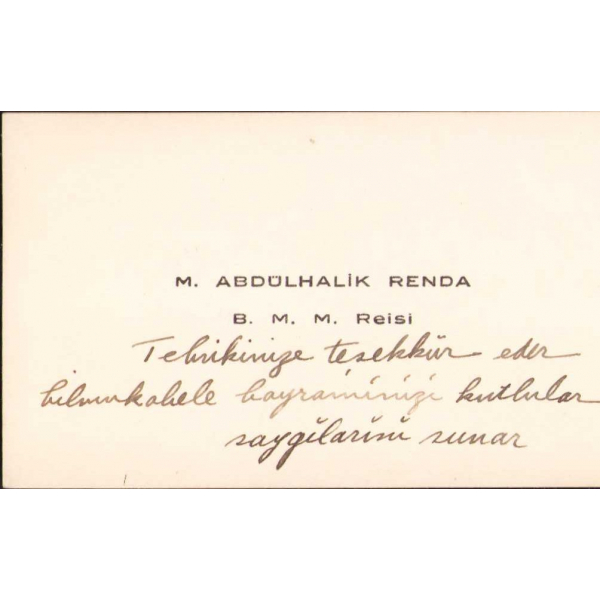 M. ABDÜLHALİK RENDA
B. M. M. Reisi
Tebrikinize teşekkür eder
bilmukabele bayramınızı kutlular
saygılarını sunar